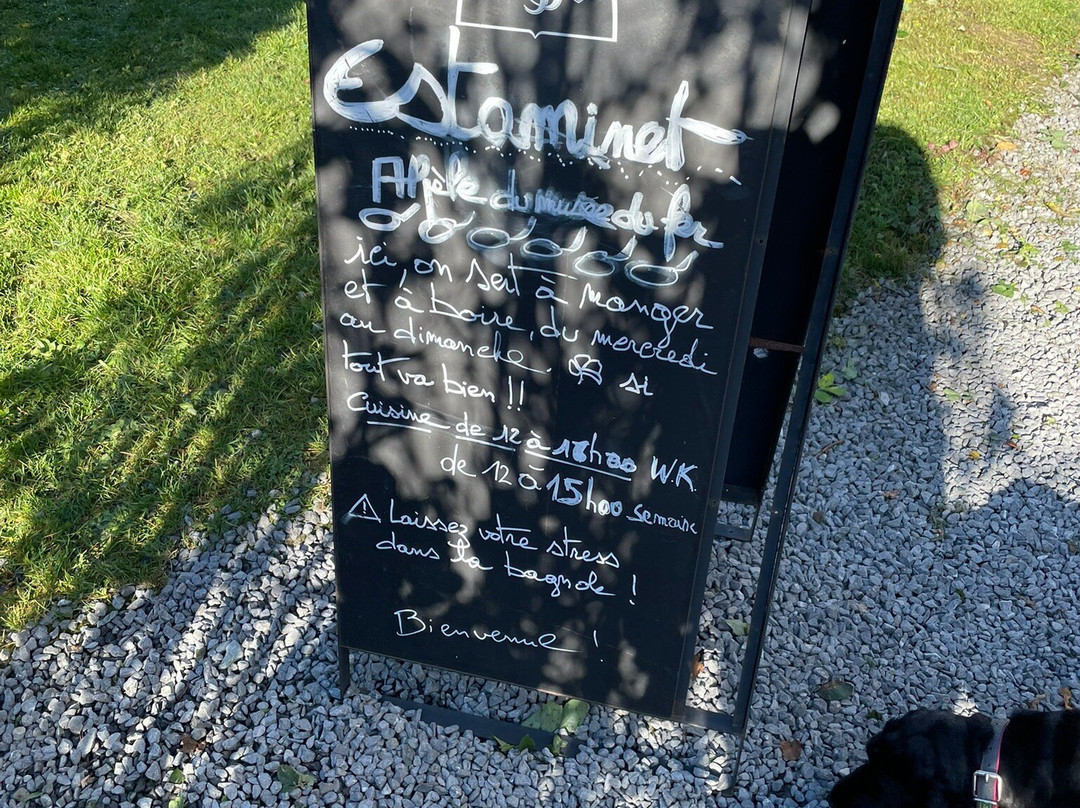 Estaminet
A Pêle du musée du fer
ici, on sert à manger
et à boire, du mercredi
au dimanche. si
tout va bien !!
Cuisine de 12 à 16h00 W.K
de 12 à 15h00 semaine
Laissez votre stress
dans la bagnole !
Bienvenue !